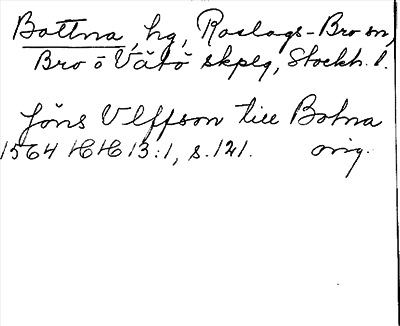 Bottna, hg, Roslags-Bro sn,
Bro ō Vätö skplg, Stockh. l.
Jöns Vlffson till Botna
1564 HH 13:1, s. 121. orig.